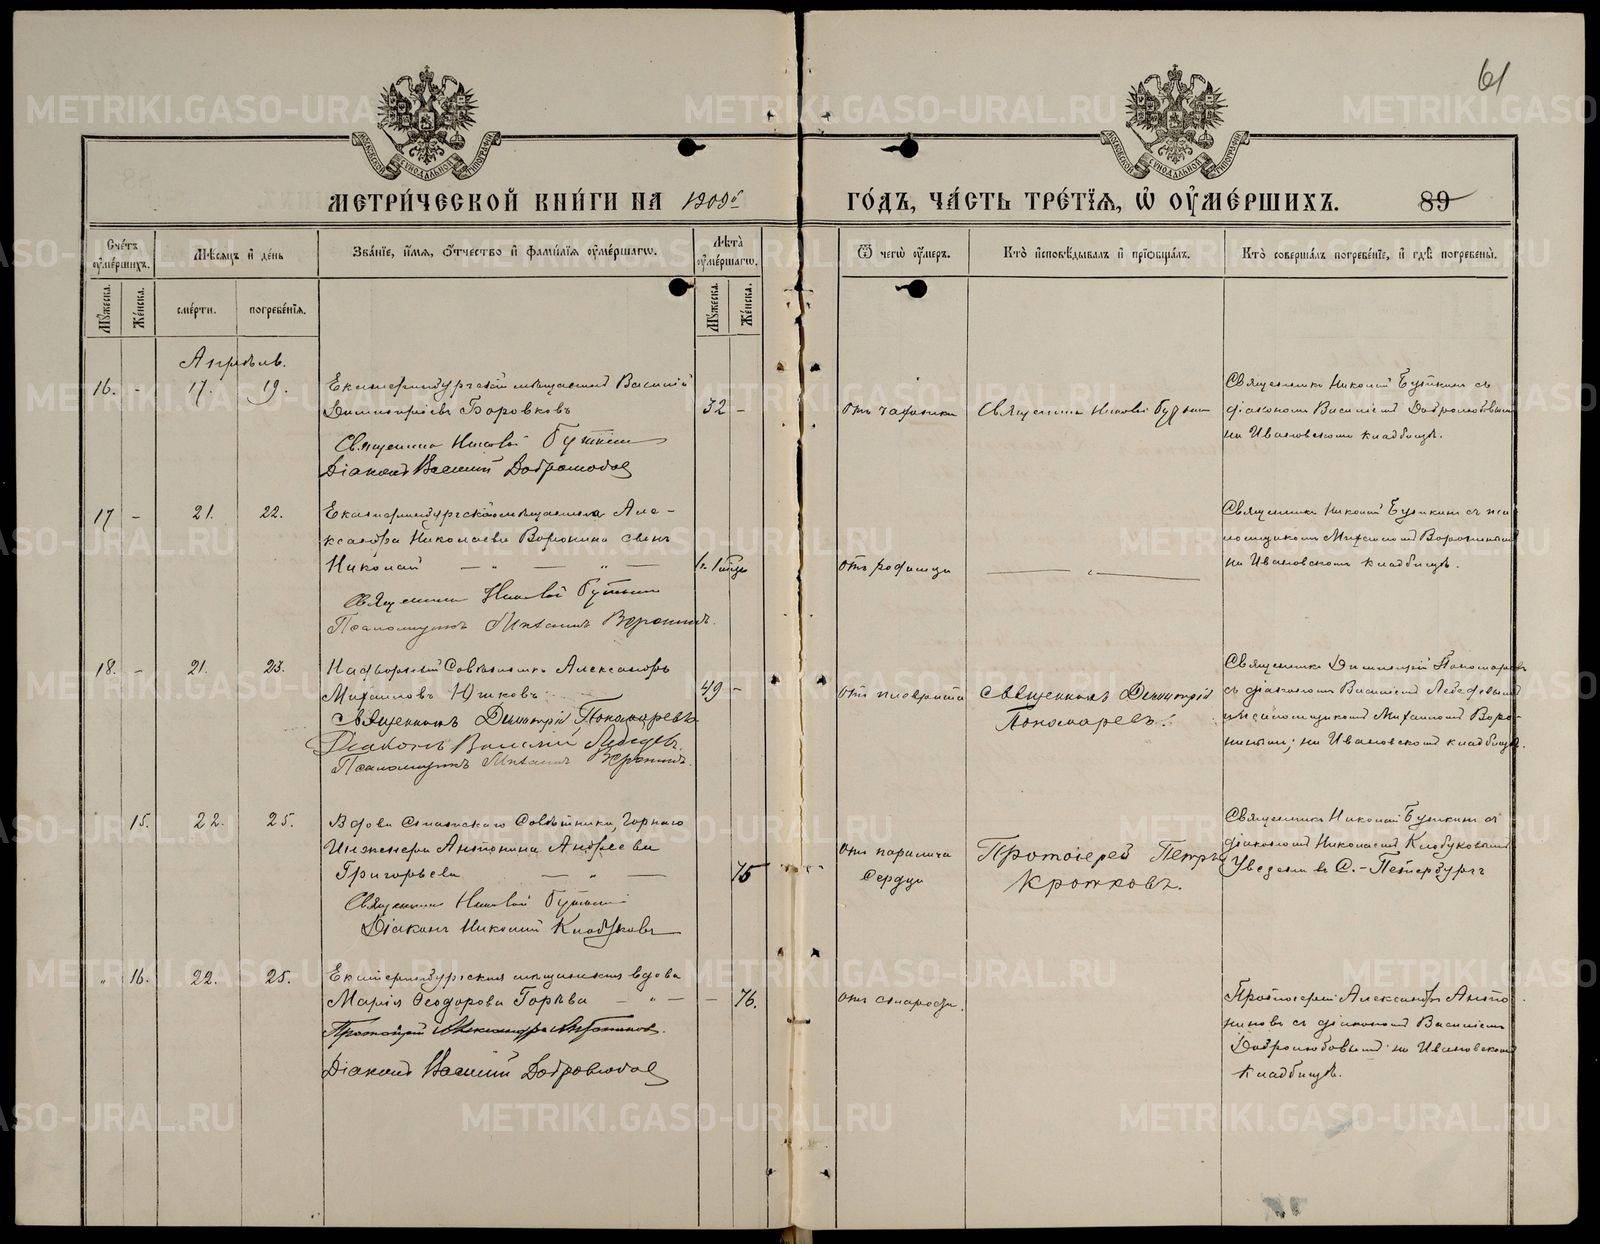 61
МОСКОВСКОЙ СУНОДАЛЬНОЙ ТИПОГРАФІИ
МОСКОВСКОЙ СУНОДАЛЬНОЙ ТИПОГРАФІИ
МЕТРИ́ЧЕСКОЙ КНИ́ГИ НА 1909й ГО́ДЪ, ЧА́СТЬ ТРЕ́ТІѦ, Ѡ҆ ОУ҆МЕ́РШИХЪ. 89
Сче́тъ оу҆ме́ршихъ.
Мѣ́сяцъ и҆ де́нь
Зва́нїе, и҆́мѧ, ѻ҆́тчество и҆ фами́лїѧ оу҆ме́ршагѡ.
Лѣ́та оу҆ме́ршагѡ.
Ѿ чегѡ̀ оу҆́меръ.
Кто̀ и҆сповѣ́дывалъ и҆ прїѡбща́лъ.
Кто̀ соверша́лъ погребе́нїе, и҆ гдѣ̀ погребены̀.
Мꙋ́жеска.
Же́нска.
сме́рти.
погребе́нїѧ.
Мꙋ́жеска.
Же́нска.
Апрѣль.
16. - 17. 19.
Екатеринбургскій мѣщанинъ Василій
Димитріевъ Боровковъ
Священникъ Николай Буткинъ
Діаконъ Василій Добролюбовъ
32 -
отъ чахотки
Священникъ Николай Буткин
Священникъ Николай Буткинъ съ
діакономъ Василіемъ Добролюбовымъ
на Ивановскомъ кладбищѣ.
17 - 21. 22.
Екатеринбургской мѣщанина Але-
ксандра Николаева Воронина сынъ
Николай — " — " —
Священникъ Николай Буткинъ
Псаломщикъ Михаилъ Воронинъ.
отъ родимца
Священникъ Николай Буткинъ съ пса
ломщикомъ Михаиломъ Воронинымъ
на Ивановскомъ кладбищѣ.
18. - 21. 23.
Надворный Совѣтникъ Александръ
Михаиловъ
Священникъ Димитрій Пономаревъ
Діаконъ Василій Лебедевъ.
Псаломщикъ Михаилъ Воронинъ.
49 -
отъ плеврита
Священникъ Димитрій
Пономаревъ.
Священникъ Димитрій Пономаревъ
съ діакономъ Василіемъ Лебедевымъ
и псаломщикомъ Михаиломъ Воро-
нинымъ; на Ивановскомъ кладбищѣ.
" 15. 22. 25.
Вдова Статскаго Совѣтника, Горнаго
Инженера Антонина Андреева
Григорьева — " —
Священникъ Николай Буткинъ
Діаконъ Николай Клобуковъ
75
отъ паралича
сердца
Протоіерей Петръ
Кротковъ.
Священникъ Николай Буткинъ съ
діакономъ Николаемъ Клобуковымъ
Увезена въ С.-Петербургъ
" 16. 22. 25.
Екатеринбургская мѣщанская вдова
Марія Ѳеодорова Горѣва — " —
Протоіерей Александръ Антониновъ.
Діаконъ Василій Добролюбовъ
- 76.
отъ старости.
Протоіерей Александръ Анто
ниновъ съ діакономъ Василіемъ
Добролюбовымъ на Ивановскомъ
кладбищѣ.
METRIKI.GASO-URAL.RU